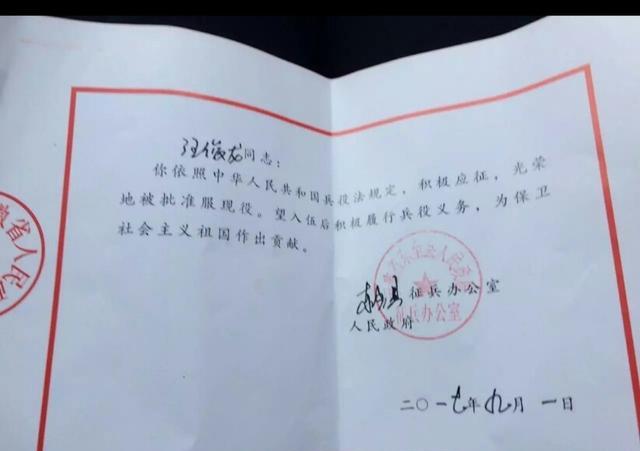 汪俊龙同志：
你依照中华人民共和国兵役法规定，积极应征，光荣
地被批准服现役。望入伍后积极履行兵役义务，为保卫
社会主义祖国作出贡献。
省人民
东至县人民政府
征兵办公室
东至县征兵办公室
人民政府
二〇一七年九月一日